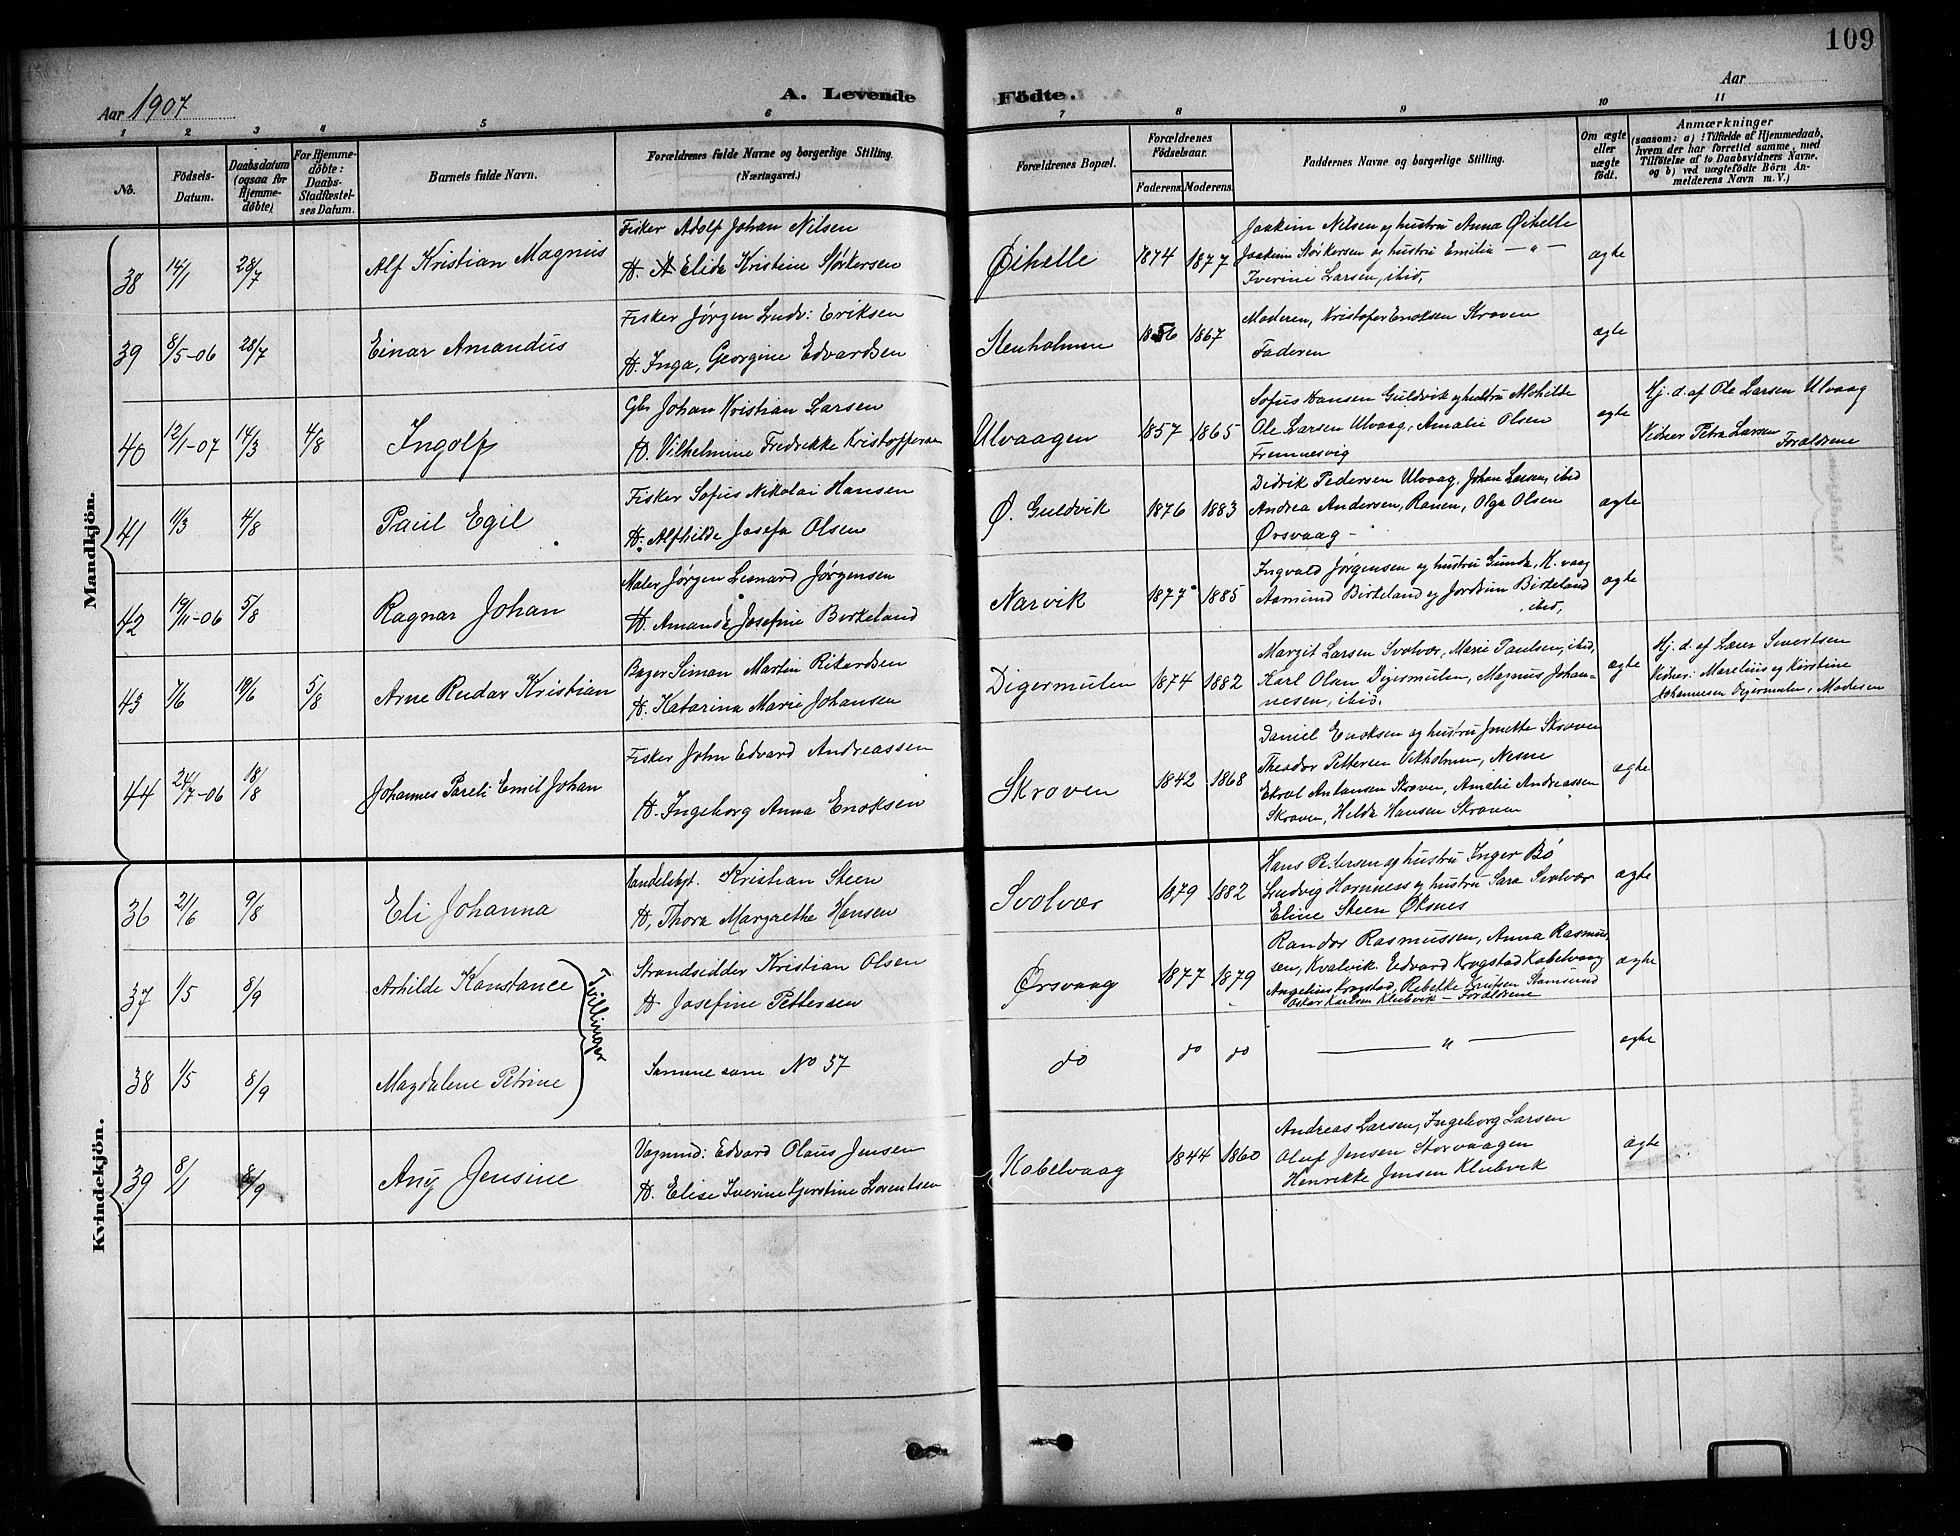 109
Aar 1907
A. Levende
Födte.
Aar
1 2 3 4 5 6 7 8 9 10 11
No.
Födsels-
Datum.
Daabsdatum
(ogsaa for
Hjemme-
døbte)
For Hjemme-
døbte:
Daabs-
Stadfæstel-
ses Datum.
Barnets fulde Navn.
Forældrenes fulde Navne og borgerlige Stilling.
(Næringsvei.)
Forældrenes Bopæl.
Forældrenes
Födselsaar.
Faderens. Moderens.
Faddernes Navne og borgerlige Stilling.
Om ægte
eller
uægte
født.
Anmærkninger
(saasom: a) i Tilfælde af Hjemmedaab,
hvem der har forrettet samme, med
Tilföielse af to Daabsvidners Navne,
og b) ved uægtefødte Börn An-
melderens Navn m. V.)
Mandkjön.
38 14/1 28/7 Alf Kristian Magnus
Fisker Adolf Johan Nilsen
H. Elida Kristine Størkersen
Øihelle 1874 1877
Joakim Nilsen og hustru Anna Øihelle
Joakim Størkersen og hustru Emilia — " —
Iverine Larsen, ibid,
ægte
39 8/5-06 28/7 Einar Amandus
Fisker Jørgen Ludv: Eriksen
H. Inga, Georgine Edvardsen
Stenholmen 1856 1867
Moderen, Kristofer Enoksen Skroven
Faderen
ægte
40 12/1-07 14/3 4/8 Ingolf
Gbr Johan Kristian Larsen
H. Vilhelmine Fredrekke Kristoffersen
Ulvaagen 1857 1865
Sofus Hansen Guldvik og hustru Alohilde
Ole Larsen Ulvaag, Amalie Olsen
ægte
Hj. d. af Ole Larsen Ulvaag
Vidner Petra Larsen
Forældrene
41 1/3 4/8 Paul Egil
Fisker Sofus Nikolai Hansen
H. Alfhilde Josefa Olsen
Ø. Guldvik 1876 1883
Didrik Pedersen Ulvaag, Johan Larsen, ibid
Andrea Andersen, Ranen, Olga Olsen
Ørsvaag -
ægte
42 19/11-06 5/8 Ragnar Johan
Maler Jørgen Leonard Jørgensen
H. Amanda Josefine Birkeland
Narvik 1877 1885
Ingvald Jørgensen og hustru Gunda, K. vaag
Aamund Birkeland og Jordsun Birkeland
ibid,
ægte
43 7/6 19/6 5/8 Arne Reidar Kristian
Bager Siman Martin Rikardsen
H. Katarina Marie Johansen
Digermulen 1874 1882
Margit Larsen Svolvær, Marie Paulsen, ibid,
Karl Olsen Digermulen, Magnus Johan-
nesen, ibid.
ægte
Hj. d. af Lærer Sivertsen
Vidner: Marelius og Kirstine
Johannesen Digermulen, Moderen
44 24/7-06 18/8 Johannes Pareli Emil Johan
Fisker John Edvard Andreassen
H. Ingeborg Anna Enoksen
Skroven 1842 1868
Daniel Enoksen og hustru Jonette Skroven
Theodor Pettersen Vikholmen, Nesne
Antonsen Skroven, Amelie Andreassen
Skroven, Hilda Hansen Skroven
ægte
Kvindekjön.
36 21/6 9/8 Eli Johanna
Handelsbet. Kristian Steen
H, Thora Margrethe Hansen
Svolvær 1879 1882
Hans Pedersen og hustru Inger Bö
Ludvig Hornness og hustru Sara Svolvær
Eline Steen Øksnes
ægte
37 1/5 8/9 Arhilde Konstance
Tvillinger
Strandsidder Kristian Olsen
H Josefine Pettersen
Ørsvaag 1877 1879
Randor Rasmussen, Anna Rasmus-
sen, Kvalvik. Edvard Krogstad Kabelvaag
Angelius Krogstad, Rebekke Knutsen Stamsund
Oskar Karlsen Klubvik - Forældrene
ægte
38 1/5 8/9 Magdalene Petrine
Samme som No 37
do do do
— " —
ægte
39 8/1 8/9 Any Jensine
Vognmd: Edvard Olaus Jensen
H. Elise Iverine Kjerstine Lorentsen
Kabelvaag 1844 1860
Andreas Larsen, Ingeborg Larsen
Oluf Jensen Storvaagen
Henrikke Jensen Klubvik
ægte